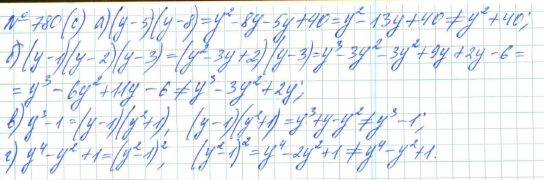 № 780 (с) а) (y-5)(y-8) = y² - 8y - 5y + 40 = y² - 13y + 40 ≠ y² + 40;
б) (y-1)(y-2)(y-3) = (y² - 3y + 2)(y-3) = y³ - 3y² - 3y² + 9y + 2y - 6 =
= y³ - 6y² + 11y - 6 ≠ y³ - 3y² + 2y;
в) y³ - 1 = (y-1)(y²+1), (y-1)(y²+1) = y³ + y - y² ≠ y³ - 1;
г) y⁴ - y² + 1 = (y²-1)², (y²-1)² = y⁴ - 2y² + 1 ≠ y⁴ - y² + 1.